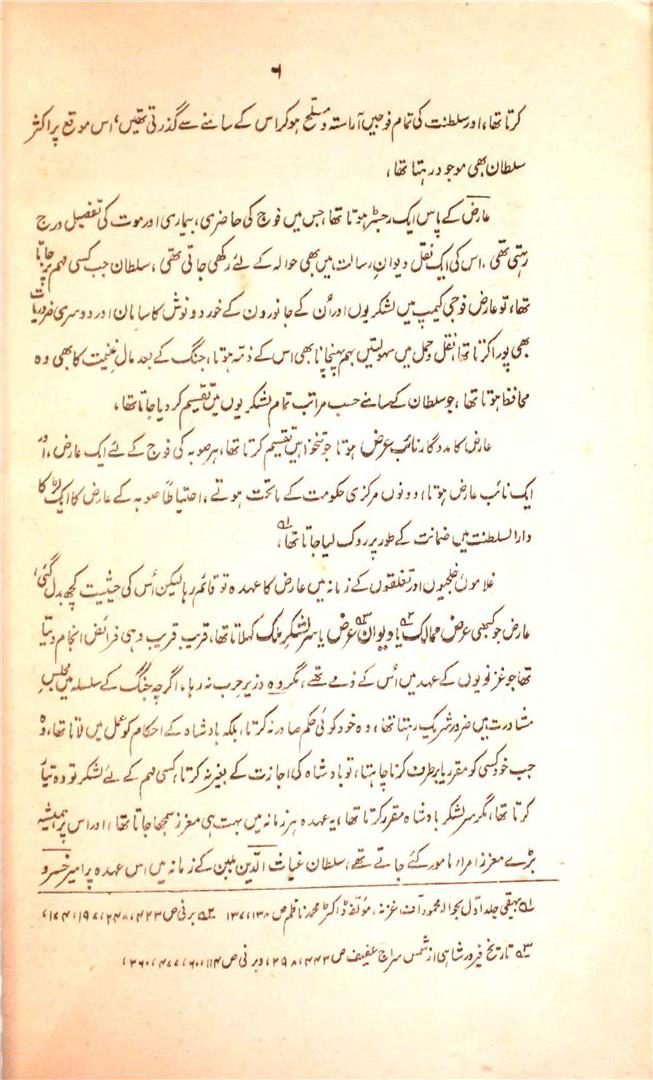 ۶
کرتا تھا، اور سلطنت کی تمام فوجیں آراستہ و مسلح ہو کر اس کے سامنے سے گذرتی تھیں، اس موقع پر اکثر
سلطان بھی موجود رہتا تھا،
عارض کے پاس ایک رجسٹر ہوتا تھا، جس میں فوج کی حاضری، بیماری اور موت کی تفصیل درج
رہتی تھی، اس کی ایک نقل دیوان رسالت میں بھی حوالہ کے لئے رکھی جاتی تھی، سلطان جب کسی مہم پر جاتا
تھا، تو عارض فوجی کیمپ میں لشکریوں اور اُن کے جانورون کے خورد و نوش کا سامان اور دوسری ضروریات
بھی پورا کرتا تھا، نقل و حمل میں سہولتیں بہم پہنچانا بھی اس کے ذمہ ہوتا، جنگ کے بعد مال غنیمت کا بھی وہ
محافظ ہوتا تھا، جو سلطان کے سامنے حسب مراتب تمام لشکریوں میں تقسیم کر دیا جاتا تھا،
عارض کا مددگار نائب عرض ہوتا جو تنخواہیں تقسیم کرتا تھا، ہر صوبہ کی فوج کے لئے ایک عارض، اور
ایک نائب عارض ہوتا، دونوں مرکزی حکومت کے ماتحت ہوتے، احتیاطاً صوبہ کے عارض کا ایک لڑکا
دارالسلطنت میں ضمانت کے طور پر روک لیا جاتا تھا،؎۱
غلاموں خلجیوں اور تغلقوں کے زمانہ میں عارض کا عہدہ تو قائم رہا لیکن اُس کی حیثیت کچھ بدل گئی،
عارض جو کبھی عرض ممالک؎۲ یا دیوان؎۳ عرض یا سر لشکر ملک کہلاتا تھا، قریب قریب وہی فرائض انجام دیتا
تھا جو غزنویوں کے عہد میں اُس کے ذمے تھے، مگر وہ وزیر حرب نہ رہا، اگرچہ جنگ کے سلسلہ میں مجلس
مشاورت میں ضرور شریک رہتا تھا، وہ خود کوئی حکم صادر نہ کرتا، بلکہ بادشاہ کے احکام کو عمل میں لاتا تھا، وہ
جب خود کسی کو مقرر یا برطرف کرنا چاہتا، تو بادشاہ کی اجازت کے بغیر نہ کرتا، کسی مہم کے لئے لشکر تو وہ تیار
کرتا تھا، مگر سر لشکر بادشاہ مقرر کرتا تھا، یہ عہدہ ہر زمانہ میں بہت ہی معزز سمجھا جاتا تھا، اور اس پر ہمیشہ
بڑے معزز امراء مامور کئے جاتے تھے، سلطان غیاث الدین بلبن کے زمانہ میں اس عہدہ پر امیر خسرو
؎۱ بیہقی جلد اول بحوالہ محمود آف غزنہ، مؤلفہ ڈاکٹر محمد ناظم ص ۱۳۸، ۱۳۷ ؎۲ برنی ص ۴۲۳، ۲۴۸، ۱۹۷، ۱۷۴،
؎۳ تاریخ فیروز شاہی از شمس سراج عفیف ص ۴۴۳، ۲۹۸، و برنی ص ۱۱۴، ۶۰، ۴۷۷، ۳۶۰،